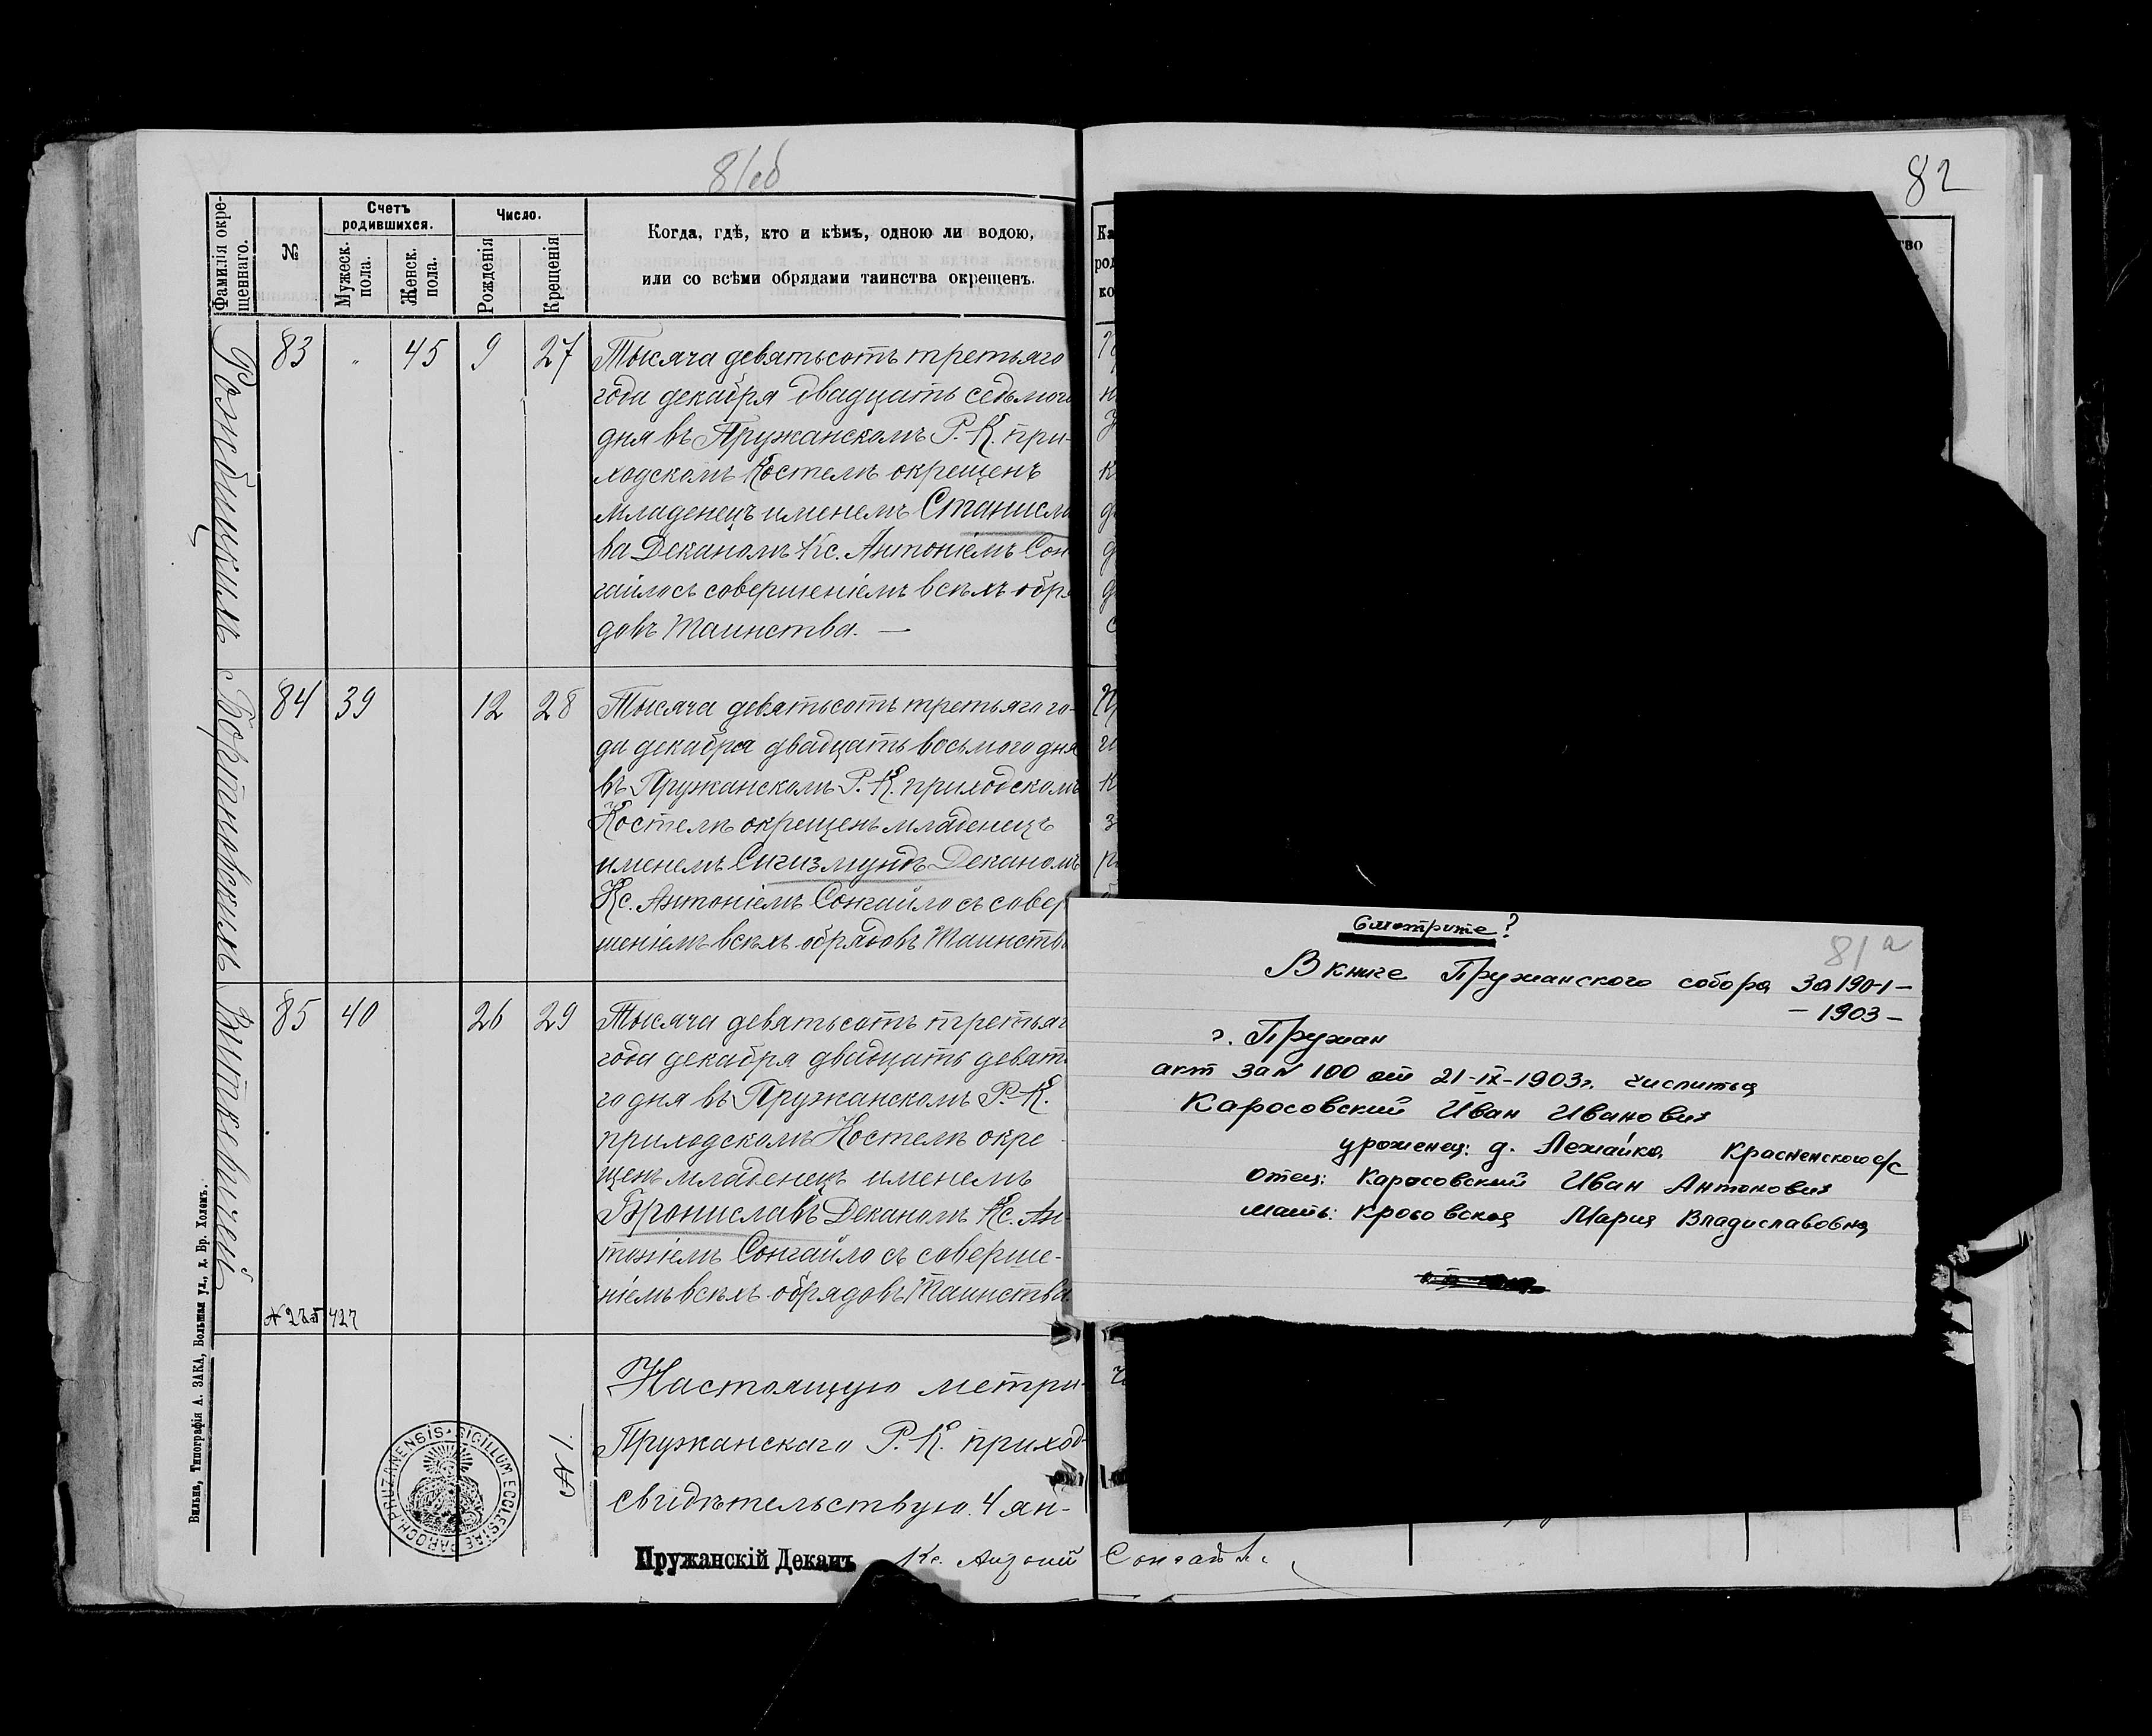 81об
82
Фамилія окре-
щеннаго.
№
Счетъ
родившихся.
Мужеск.
пола.
Женск.
пола.
Число.
Рожденія
Крещенія
Когда, гдѣ, кто и кѣмъ, одною ли водою,
или со всѣми обрядами таинства окрещенъ.
83 „ 45 9 27
Тысяча девятьсотъ третьяго
года декабря двадцать седьмого
дня въ Пружанскомъ Р.-К. при-
ходскомъ Костелѣ окрещенъ
младенецъ именемъ Станисла
ва Деканомъ Кс. Антоніемъ Сон
гайло съ совершеніемъ всѣхъ обря
довъ Таинства. —
Бертновскихъ
84 39 12 28
Тысяча девятьсотъ третьяго го-
да декабря двадцать восьмого дня
въ Пружанскомъ Р.-К. приходскомъ
Костелѣ окрещенъ младенецъ
именемъ Сигизмундъ Деканомъ
Кс. Антоніемъ Сонгайло съ совер
шеніемъ всѣхъ обрядовъ Таинства
85 40 26 29
Тысяча девятьсотъ третьяго
года декабря двадцать девято
го дня въ Пружанскомъ Р.-К.
приходскомъ Костелѣ окре
щенъ младенецъ именемъ
Брониславъ Деканомъ Кс. Ан-
тоніемъ Сонгайло съ соверше-
ніемъ всѣхъ обрядовъ Таинства
Настоящую метри-
Пружанскаго Р.-К. приход-
свидѣтельствую. 4 ян-
№ 1.
Пружанскій Деканъ Кс. Антоній Сонгайло
SIGILLUM ECCLESIAE PAROCH. PRUZANENSIS
Вильна, Типографія А. ЗАКА, Большая ул., д. Бр. Холемъ.
Смотрите?
81а
В книге Пружанского собора за 1901-
- 1903 -
г. Пружан
акт за № 100 от 21-IX-1903г. числится
Каросовский Иван Иванович
уроженец: д. Лежайка Красненского с/с
Отец: Каросовский Иван Антонович
мать: Кросовская Мария Владиславовна